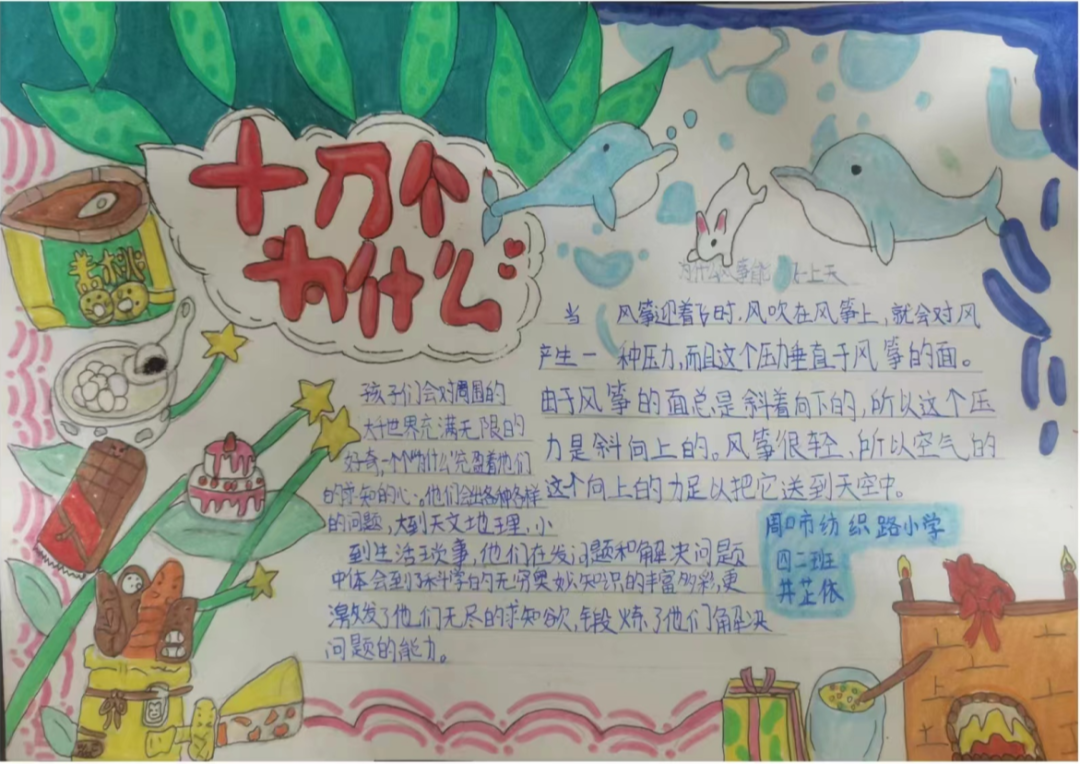 十万个
为什么
为什么风事能 上天
当 风筝迎着飞时，风吹在风筝上，就会对风
产生一 种压力，而且这个压力垂直于风筝的面。
由于风筝的面总是斜着向下的，所以这个压
力是斜向上的。风筝很轻、所以空气的
这个向上的力足以把它送到天空中。
孩子们会对周围的
大千世界充满无限的
好奇，一个个“为什么”充盈着他们
的求知的心。他们会出各种各样
的问题，大到天文地理，小
到生活琐事，他们在发问题和解决问题
中体会到了科学的无穷奥妙、知识的丰富多彩，更
激发了他们无尽的求知欲，锻炼了他们解决
问题的能力。
周口市纺织路小学
四二班
井芷依